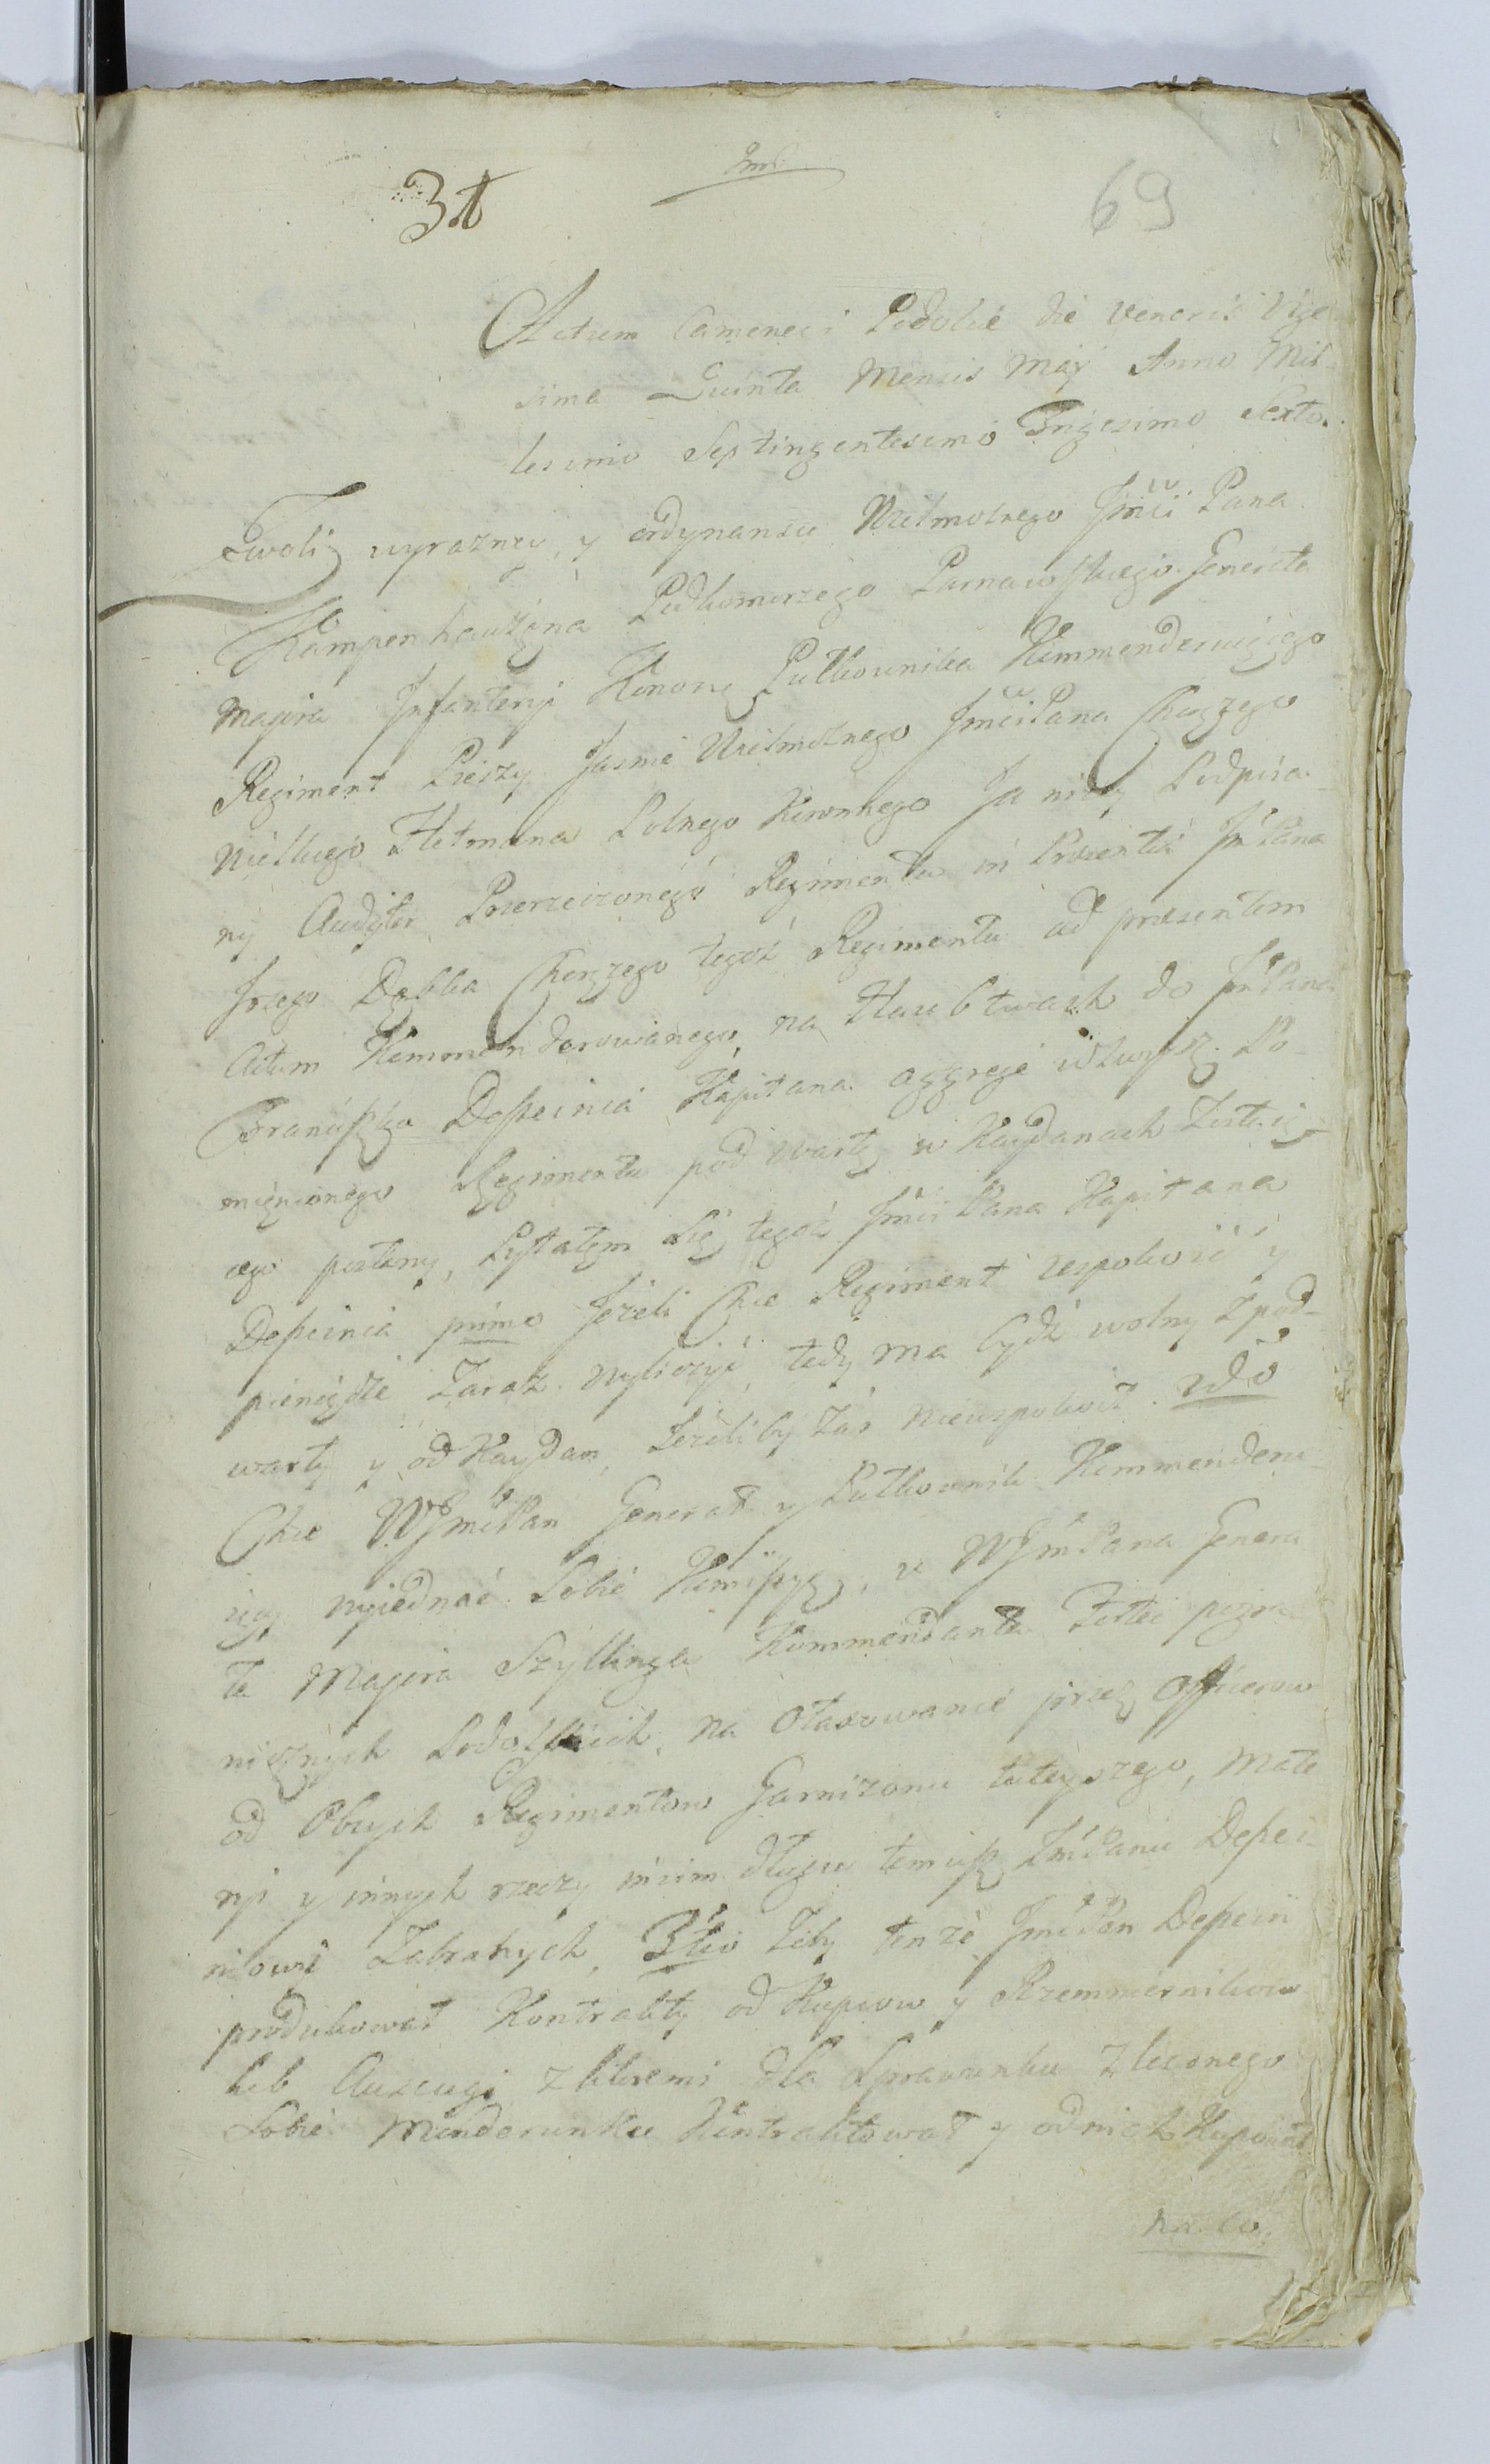 3t
69
Actum Camenecii Podoliæ die Veneris Vige
sima Quinta Mensis Maÿ Anno Mil
lesimo Septingentesimo Trigesimo Sexto.
Zwoli wyrazney, y ordynansu Wielmożnego Jmći Pana
Kampenhauzena Podkomorzego Parnawskiego Generała
Majora Infanteryi Koronę Pułkownika Kommenderuiącego
Regiment Pieszy Jasnie Wielmożnego JmciPana Chorążego
Wielkiego Hetmana Polnego Koronnego Ja niżey Podpisa-
ny Audytor Przerzeczonego Regimentu w Prezentii Jm̃Pana
Jrzego Dąbka Chorążego tegoż Regimentu ad præsentem
Actum Kommenderowanego, na Haubtwach do Jm̃Pana
Franciszka Depeinia Kapitana aggregé w zwysz Po-
mięnionego Regimentu pod wartę w Kaydanach Zostaią-
cego posłany, Pytałem się tegoż Jmći Pana Kapitana
Depeinia primo Jeżeli Chce Regiment uspokoić y
pieniądze Zaraz Wyliczyć tedy ma bydź wolny z pod
warty y od Kaydan, Jeżeliby Zaś nieuspokoił. 2do
Chce WJmćPan Generał y Pułkownik Kommenderu-
iący wyiednać Sobie Komissyę, u WJm̃Pana Genera
ła Majora Szyllinga Kommendanta Fortec pogra
nicznych Podolskich, na Otaxowanie przez Officerow
od Obuych Regimentow Garnizonu tuteyszego, Mate
ryi y innych rzeczy in vim długu temusz Jm̃Panu Depei-
niowi Zabranych, 3tio Żeby tenże JmćPan Depein
produkował Kontrakty od Kupcow y Rzemmiesnikow
lub Auscugi z ktoremi dla Sprawunku Zleconego
Sobie Munderunku Kontraktował y od nich Kupował
na co